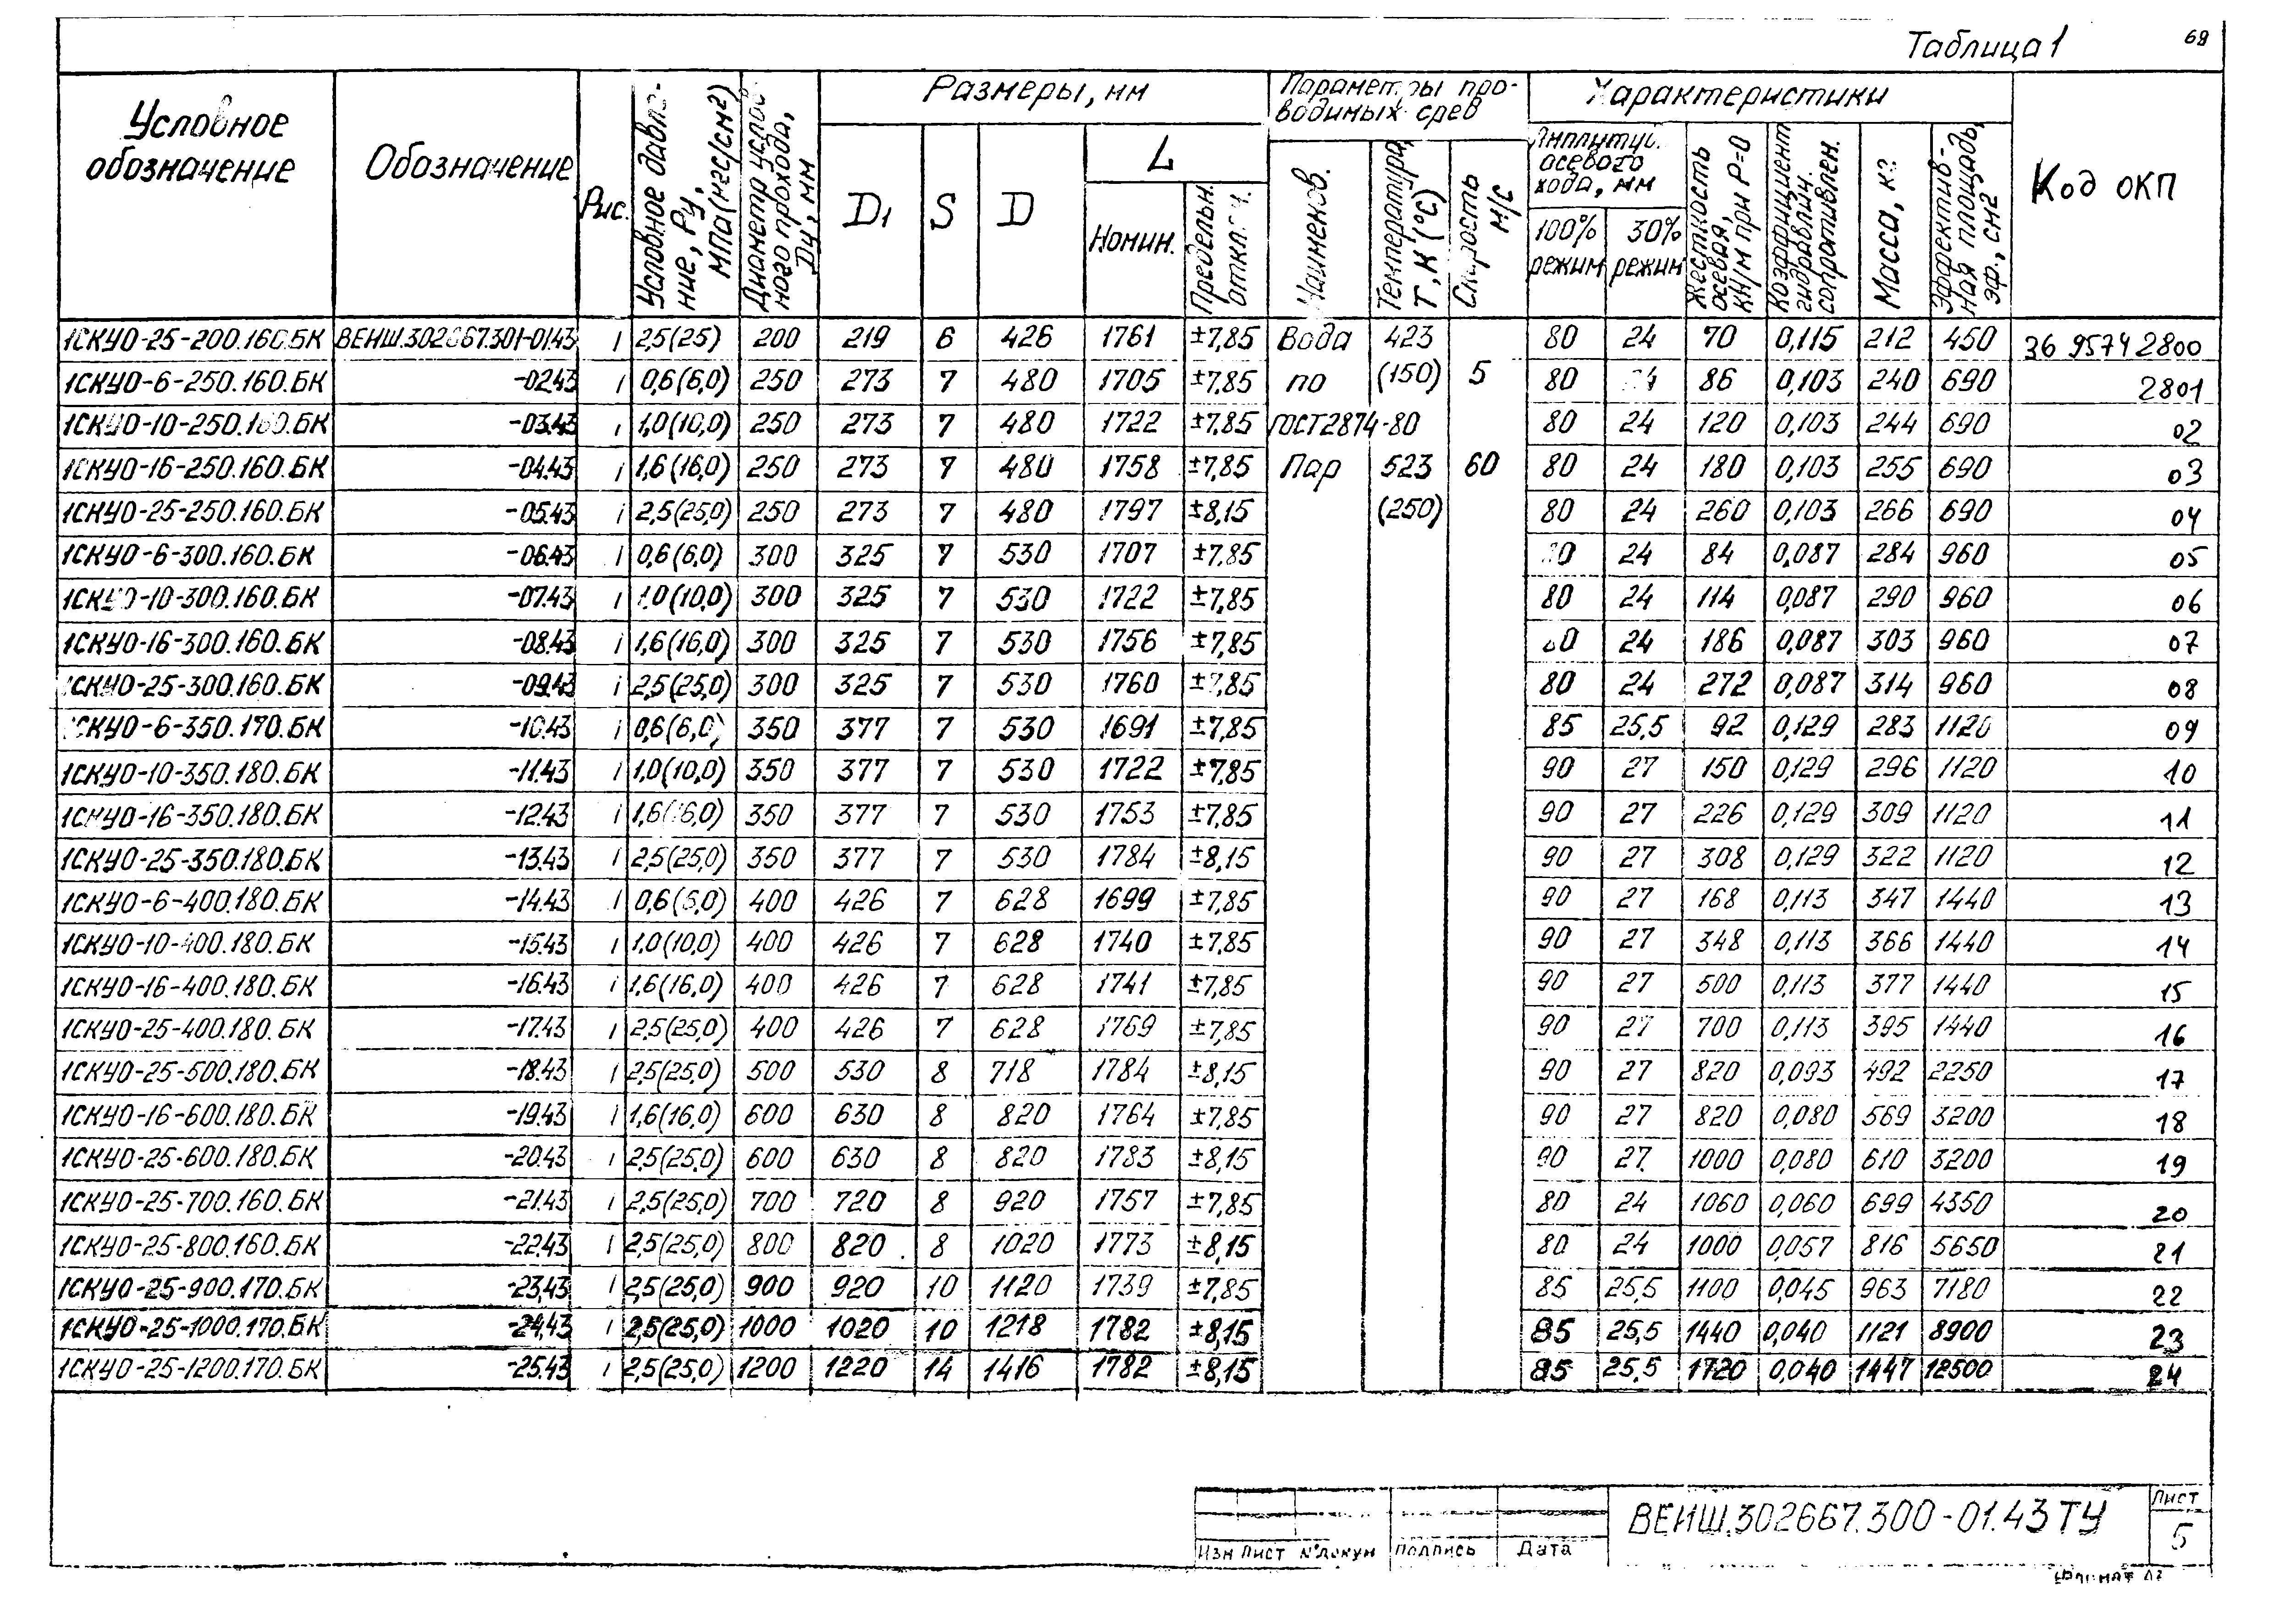 Таблица 1
69
Условное обозначение
Обозначение
Рис.
Условное давле-
ние, Ру,
МПа (кгс/см²)
Диаметр услов-
ного прохода,
Dу, мм
Размеры, мм
D1
S
D
L
Номин.
Предельн. откл.
Параметры про-
водимых сред
Наименов.
Температура, Т, К (°С)
Скорость м/с
Характеристики
осевого
хода, мм
100% режим
30% режим
Жесткость осевая, кН/м при Р=0
Коэффициент гидравлич. сопротивлен.
Масса, кг
Эффектив-
ная площадь,
эф., см²
Код ОКП
1СКУО-25-200.160.БК ВЕИШ.302667.301-01.43 1 2,5(25) 200 219 6 426 1761 ±7,85 Вода 423 80 24 70 0,115 212 450 36 9574 2800
1СКУО-6-250.160.БК -02.43 1 0,6(6,0) 250 273 7 480 1705 ±7,85 по (150) 5 80 24 86 0,103 240 690 2801
1СКУО-10-250.160.БК -03.43 1 1,0(10,0) 250 273 7 480 1722 ±7,85 ГОСТ2874-80 80 24 120 0,103 244 690 02
1СКУО-16-250.160.БК -04.43 1 1,6(16,0) 250 273 7 480 1758 ±7,85 Пар 523 60 80 24 180 0,103 255 690 03
1СКУО-25-250.160.БК -05.43 1 2,5(25,0) 250 273 7 480 1797 ±8,15 (250) 80 24 260 0,103 266 690 04
1СКУО-6-300.160.БК -06.43 1 0,6(6,0) 300 325 7 530 1707 ±7,85 80 24 84 0,087 284 960 05
1СКУО-10-300.160.БК -07.43 1 1,0(10,0) 300 325 7 530 1722 ±7,85 80 24 114 0,087 290 960 06
1СКУО-16-300.160.БК -08.43 1 1,6(16,0) 300 325 7 530 1756 ±7,85 80 24 186 0,087 303 960 07
1СКУО-25-300.160.БК -09.43 1 2,5(25,0) 300 325 7 530 1760 ±7,85 80 24 272 0,087 314 960 08
1СКУО-6-350.170.БК -10.43 1 0,6(6,0) 350 377 7 530 1691 ±7,85 85 25,5 92 0,129 283 1120 09
1СКУО-10-350.180.БК -11.43 1 1,0(10,0) 350 377 7 530 1722 ±7,85 90 27 150 0,129 296 1120 10
1СКУО-16-350.180.БК -12.43 1 1,6(16,0) 350 377 7 530 1753 ±7,85 90 27 226 0,129 309 1120 11
1СКУО-25-350.180.БК -13.43 1 2,5(25,0) 350 377 7 530 1784 ±8,15 90 27 308 0,129 322 1120 12
1СКУО-6-400.180.БК -14.43 1 0,6(6,0) 400 426 7 628 1699 ±7,85 90 27 168 0,113 347 1440 13
1СКУО-10-400.180.БК -15.43 1 1,0(10,0) 400 426 7 628 1740 ±7,85 90 27 348 0,113 366 1440 14
1СКУО-16-400.180.БК -16.43 1 1,6(16,0) 400 426 7 628 1741 ±7,85 90 27 500 0,113 377 1440 15
1СКУО-25-400.180.БК -17.43 1 2,5(25,0) 400 426 7 628 1769 ±7,85 90 27 700 0,113 395 1440 16
1СКУО-25-500.180.БК -18.43 1 2,5(25,0) 500 530 8 718 1784 ±8,15 90 27 820 0,093 492 2250 17
1СКУО-16-600.180.БК -19.43 1 1,6(16,0) 600 630 8 820 1764 ±7,85 90 27 820 0,080 569 3200 18
1СКУО-25-600.180.БК -20.43 1 2,5(25,0) 600 630 8 820 1783 ±8,15 90 27 1000 0,080 610 3200 19
1СКУО-25-700.160.БК -21.43 1 2,5(25,0) 700 720 8 920 1757 ±7,85 80 24 1060 0,060 699 4350 20
1СКУО-25-800.160.БК -22.43 1 2,5(25,0) 800 820 8 1020 1773 ±8,15 80 24 1000 0,057 816 5650 21
1СКУО-25-900.170.БК -23.43 1 2,5(25,0) 900 920 10 1120 1739 ±7,85 85 25,5 1100 0,045 963 7180 22
1СКУО-25-1000.170.БК -24.43 1 2,5(25,0) 1000 1020 10 1218 1782 ±8,15 85 25,5 1440 0,040 1121 8900 23
1СКУО-25-1200.170.БК -25.43 1 2,5(25,0) 1200 1220 14 1416 1782 ±8,15 85 25,5 1720 0,040 1447 12500 24
ВЕИШ.302667.300-01.43 ТУ
Лист
5
Изм Лист №докум Подпись Дата